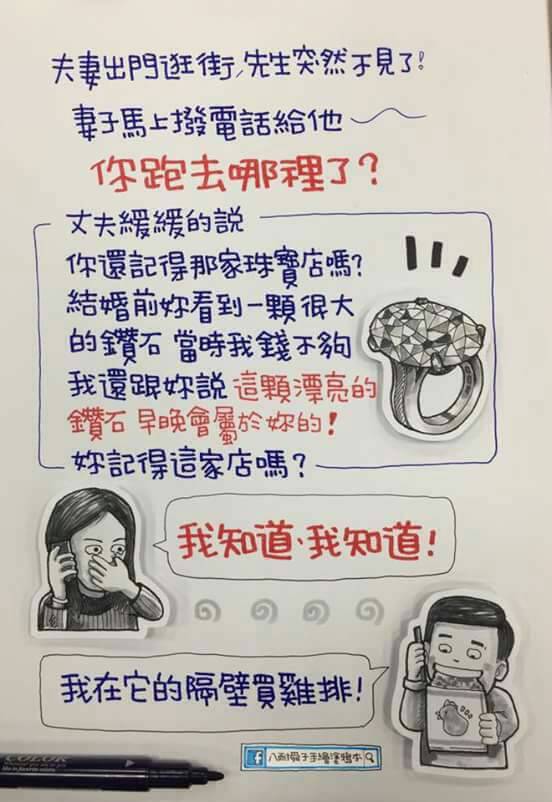 夫妻出門逛街,先生突然不見了!
妻子馬上撥電話給他
你跑去哪裡了?
丈夫緩緩的說
你還記得那家珠寶店嗎?
結婚前妳看到一顆很大
的鑽石 當時我錢不夠
我還跟妳說 這顆漂亮的
鑽石 早晚會屬於妳的!
妳記得這家店嗎?
我知道、我知道!
我在它的隔壁買雞排!
COLOR